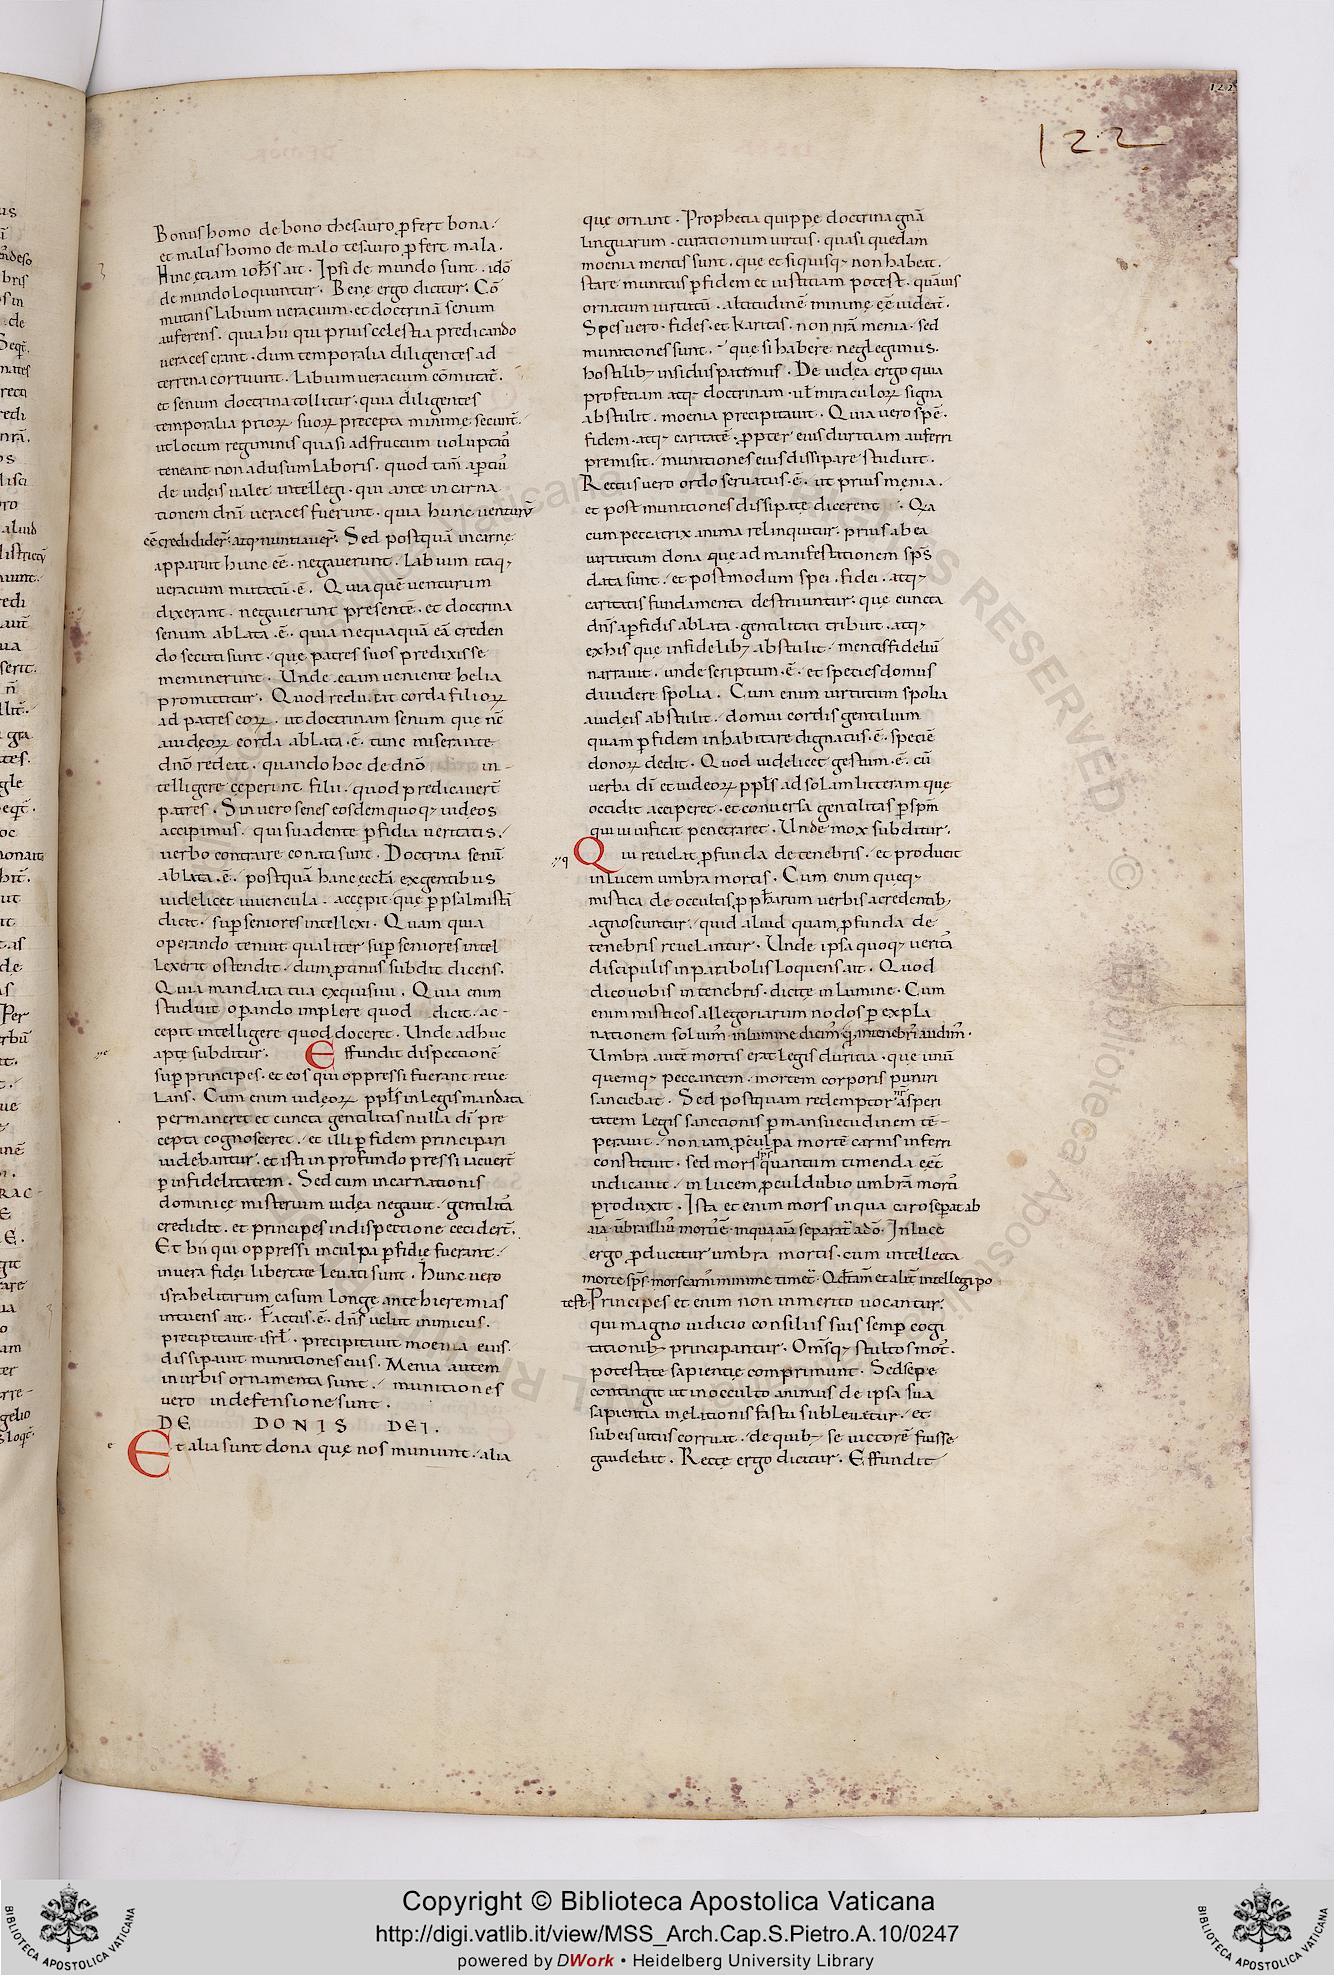 122
122
Bonus homo de bono thesauro ꝓfert bona.
et malus homo de malo tesauro ꝓfert mala.
Hinc etiam ioħs ait. Ipsi de mundo sunt. idō
de mundo loquuntur. Bene ergo dicitur. Cō
mutans labium ueracium. et doctrinā senum
auferens. quia hii qui prius celestia predicando
ueraces erant. dum temporalia diligentes ad
terrena corruunt. Labium ueracium cōmutat̄.
et senum doctrina tollitur. quia diligentes
temporalia prioꝝ suoꝝ precepta minime secunt̄.
ut locum regiminis quasi ad fructum uoluptatū
teneant non ad usum laboris. quod tam̄ apertiū
de iudeis ualet intellegi. qui ante incarna
tionem dn̄i ueraces fuerunt. quia hunc uenturū
eē crediderꝛ̄. atqꝫ nuntiauerꝛ̄. Sed postquā in carne
apparuit hunc eē. negauerunt. Labium itaqꝫ
ueracium mutatū .ē. Quia quē uenturum
dixerant. negauerunt presentē. et doctrina
senum ablata .ē. quia nequaquā eā creden
do secuti sunt. que patres suos predixisse
meminerunt. Unde etiam ueniente helia
promittitur. Quod reducat corda filioꝝ
ad patres eoꝝ. ut doctrinam senum que nc̄
a iudeoꝝ corda ablata .ē. tunc miserante
dn̄o redeat. quando hoc de dn̄o in-
telligere ceperint filii. quod predicauert̄
patres. Sin uero senes eosdem quoqꝫ iudeos
accipimus. qui suadente ꝑfidia ueritatis.
uerbo contraire conati sunt. Doctrina senū
ablata .ē. postquā hanc ecct̄a ex gentibus
uidelicet iuuencula. accepit que ꝑ psalmistā
dicit. suꝑ seniores intellexi. Quam quia
operando tenuit qualiter suꝑ seniores intel
lexerit ostendit. dum ꝓtinus subdit dicens.
Quia mandata tua exquisiui. Quia enim
studuit oꝑando implere quod dicit. ac-
cepit intelligere quod doceret. Unde adhuc
apte subditur. Effundit dispectionē
suꝑ principes. et eos qui oppressi fuerant reue
lans. Cum enim iudeoꝝ ppl̄s in legis mandata
permaneret et cuncta gentilitas nulla dī pre
cepta cognosceret. et illi ꝑ fidem principari
uidebantur. et isti in profundo pressi iacuert̄
ꝑ infidelitatem. Sed cum incarnationis
dominice misterium iudea negauit. gentilitā
credidit. et principes in dispectione cecidert̄.
Et hii qui oppressi in culpa ꝑfidie fuerant.
in uera fidei libertate leuati sunt. Hunc uero
israhelitarum casum longe ante hieremias
intuens ait. Factus .ē. dn̄s uelut inimicus.
precipitauit isrl̄. precipitauit moenia eius.
dissipauit munitiones eius. Menia autem
in urbis ornamenta sunt. munitiones
uero in defensione sunt.
DE DONIS DEI.
Et alia sunt dona quę nos muniunt. alia
que ornant. Prophetia quippe doctrina gn̄a
linguarum. curationum uirtus. quasi quedam
moenia mentis sunt. que et si quisqꝫ non habeat.
stare munitus ꝑ fidem et iustitiam potest. quāuis
ornatum uirtutū. altitudinē minime eē uideat̄.
Spes uero. fides. et karitas. non nr̄a menia. sed
munitiones sunt. que si habere neglegimus.
hostilibꝫ insidiis patemus. De iudea ergo quia
profetiam atqꝫ doctrinam. ul̄ miraculoꝝ signa
abstulit. moenia precipitauit. Quia uero spē.
fidem. atqꝫ caritatē. ꝓpter eius duritiam auferri
premisit. munitiones eius dissipare studuit.
Rectus uero ordo seruatus .ē. ut prius męnia.
et post munitiones dissipate dicerent̄. Qia
cum peccatrix anima relinquitur. prius ab ea
uirtutum dona que ad manifestationem sp̄s
data sunt. et postmodum spei. fidei. atqꝫ
caritatis fundamenta destruuntur. que cuncta
dn̄s a ꝑfidis ablata. gentilitati tribuit. atqꝫ
ex his que infidelibꝫ abstulit. mentis fideliū
narrauit. unde scriptum .ē. et species domus
diuidere spolia. Cum enim uirtutum spolia
a iudeis abstulit. domui cordis gentilium
quam ꝑ fidem inhabitare dignatus .ē. speciē
donoꝝ dedit. Quod uidelicet gestum .ē. cū
uerba dī et iudeoꝝ ppl̄s ad solam litteram que
occidit acciperet. et conuersa gentilitas ꝑ spm̄
qui uiuificat penetraret. Unde mox subditur.
Qui reuelat ꝓfunda de tenebris. et producit
in lucem umbra mortis. Cum enim queqꝫ
mistica de occultis ꝓpħarum uerbis a credentibꝫ
agnoscuntur. quid aliud quam ꝓfunda de
tenebris reuelantur. Unde ipsa quoqꝫ ueritā
discipulis in parabolis loquens ait. Quod
dico uobis in tenebris. dicite in lumine. Cum
enim misticos allegoriarum nodos ꝑ expla
nationem soluim̄. in lumine dicim̄ q̄ in tenebris audim̄.
Umbra aute mortis erat legis duritia. que unū
quemqꝫ peccantem. mortem corporis puniri
sanciebat. Sed postquam redemptor nr̄ asperi
tatem legis sanctionis ꝑ mansuetudinem tē-
perauit. non iam ꝓ culpa morte carnis inferri
constituit. sed mors sp̄s quantum timenda eēt
indicauit. in lucem ꝓculdubio umbrā mortī
produxit. Ista et enim mors in qua caro seperat ab
aīa. ūbra illiū mortis ē. in qua aīa separat̄ a dō. In luce
ergo ꝓducitur umbra mortis. cum intellecta
morte sp̄s. mors carnis minime timet̄. Qd̄ tam̄ et alit̄ intellegi po
test. Principes et enim non inmerito uocantur.
qui magno iudicio consiliis suis semꝑ cogi
tationibꝫ principantur. Om̄sqꝫ stultos mot̄.
potestate sapientie comprimunt. Sed sepe
contingit ut in occulto animus de ipsa sua
sapientia in elationis fastu subleuetur. et
sub eis uitiis corruat. de quibꝫ se uictorē fuisse
gaudebat. Recte ergo dicitur. Effundit
Copyright © Biblioteca Apostolica Vaticana
http://digi.vatlib.it/view/MSS_Arch.Cap.S.Pietro.A.10/0247
powered by DWork • Heidelberg University Library